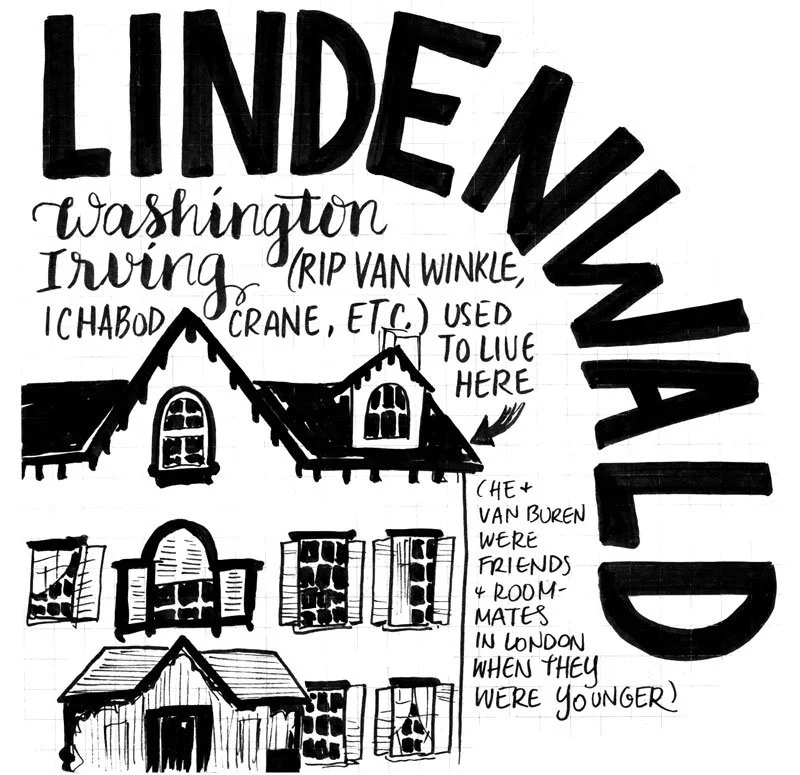 LINDENWALD
Washington
Irving (RIP VAN WINKLE,
ICHABOD CRANE, ETC.) USED
TO LIVE
HERE
(HE +
VAN BUREN
WERE
FRIENDS
+ ROOM-
MATES
IN LONDON
WHEN THEY
WERE YOUNGER)